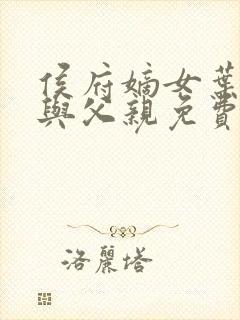 侯府嫡女葉
與父親免費
洛麗塔